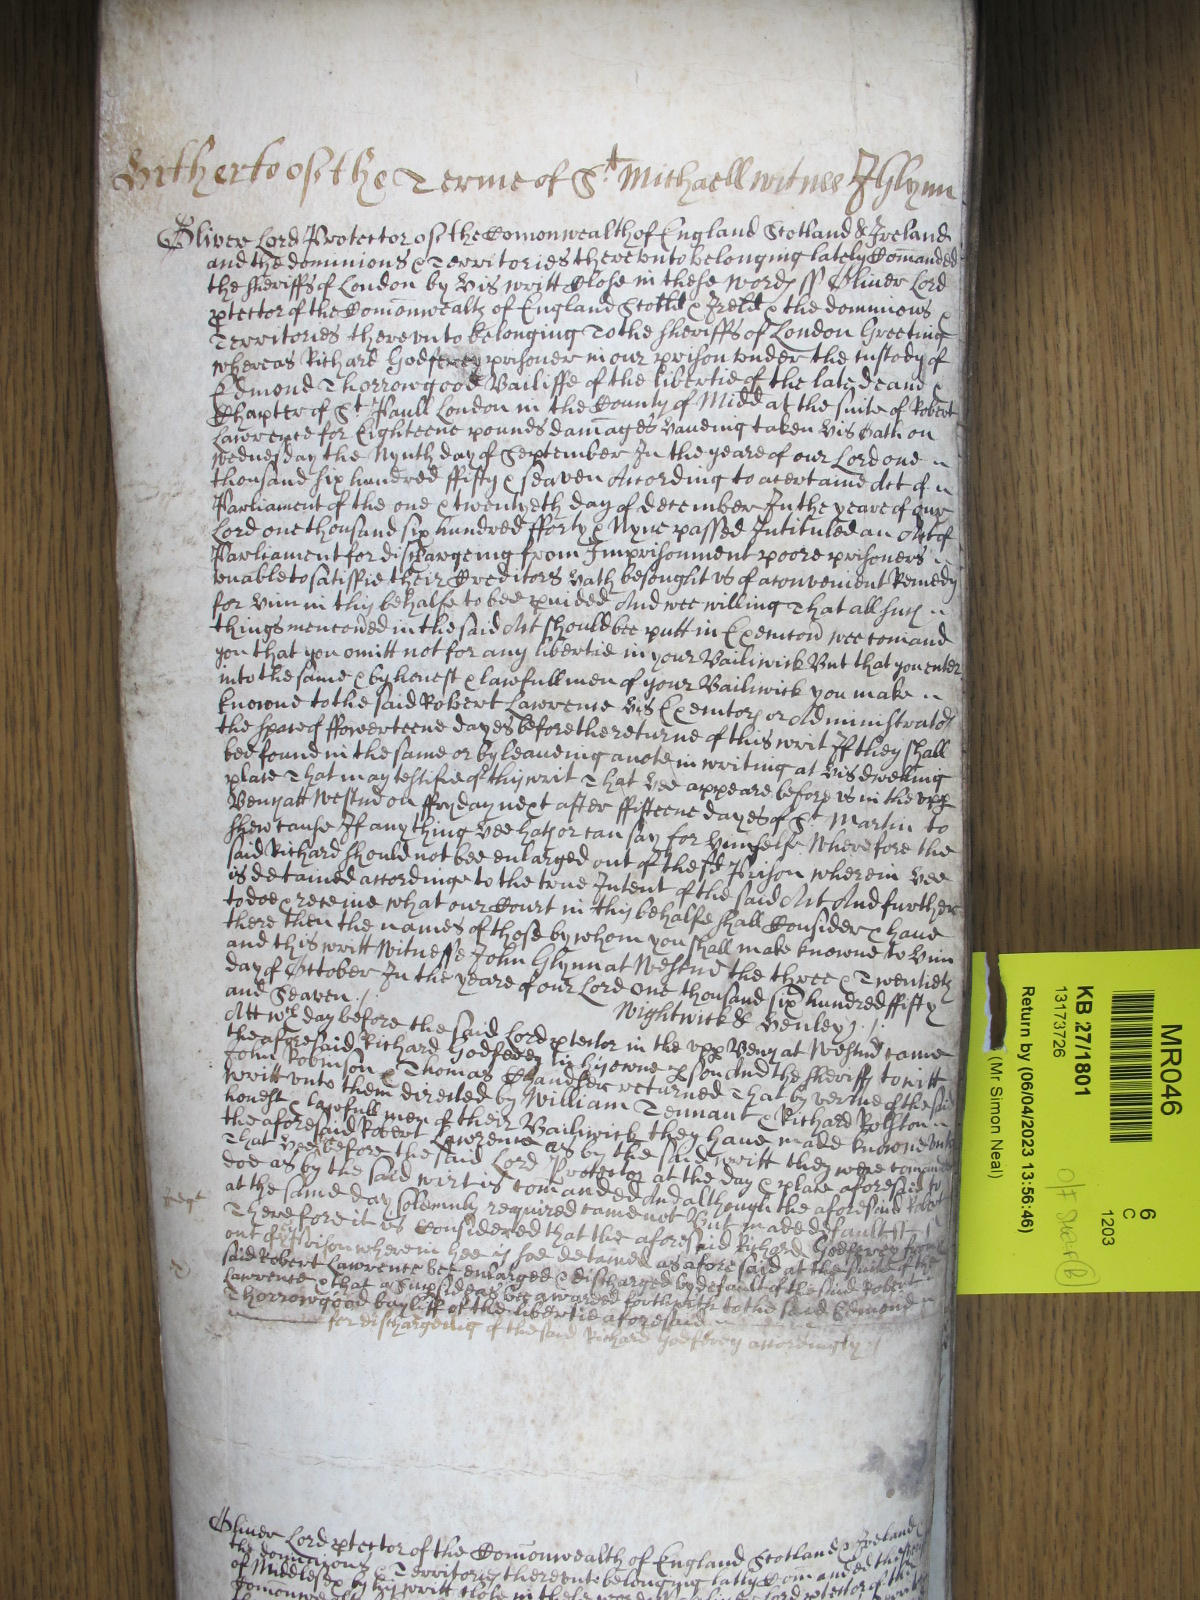 Hitherto of the Terme of St. Michaell witnes J Glynn
Oliver Lord Protector of the Comonwealth of England Scotland & Ireland
and the dominions & Territories thereunto belonging lately Comanded
the sheriffs of London by his writt Close in these words ss Oliver Lord
ptector of the Comonwealth of England Scotld & Ireld & the dominions &
Territories thereunto belonging To the sheriffs of London Greeting
whereas Richard Godferey prisoner in our prison under the Custody of
Edmond Thorrowgood Bailiffe of the libertie of the late deane &
Chapter of St. Paull London in the County of Midd at the suite of Robert
Lawrence for Eighteene pounds damages haueing taken his Oath on
wednesday the Nynth day of September In the yeare of our Lord one
thousand six hundred ffifty & seaven According to a certaine Act of
Parliament of the one & twentyeth day of december In the yeare of our
Lord one thousand six hundred fforty & Nyne passed Intituled an Act of
Parliament for dischargeing from Imprisonment poore prisoners
unable to satisfie their Creditors hath besought us of a convenient Remedy
for him in this behalfe to bee pvided And wee willing That all such
things menconed in the said Act should bee putt in Execucon wee comand
you that you omitt not for any libertie in your Bailiwick But that you enter
into the same & by honest & lawfull men of your Bailiwick you make
knowne to the said Robert Lawrence his Executors or Administrators
the space of ffowerteene dayes before the returne of this writ If they shall
bee found in the same or by leaueing a note in writing at his dwelling
place That may testifie of this writ That hee appeare before us in the upp
Bench att Westmr on ffryday next after ffifteene dayes of St Martin to
shew cause If any thing hee hath or can say for himselfe Wherefore the
said Richard should not bee enlarged out of the sd Prison wherein hee
is detained accordinge to the true Intent of the said Act And further
to doe & receiue what our Court in this behalfe shall Consider & haue
there then the names of those by whom you shall make knowne to him
and this writt Witnesse John Glynn at Westmr the three & Twentieth
day of October In the yeare of our Lord One thousand six hundred ffifty
and Seaven
Wightwick & Henley
Att wch day before the said Lord ptector in the upp Bench at Westmr came
the aforesaid Richard Godferey in his owne pson And the sheriffs to witt
John Robinson & Thomas Chandler returned That by vertue of the said
writt unto them directed by William Tennant & Richard Rolston
honest & lawfull men of their Bailiwick they haue made knowne unto
the aforesaid Robert Lawrence as by the said writt they were comanded
That hee before the said Lord Protector at the day & place aforesaid to
doe as by the said writ is comanded And although the aforesaid Robert
at the same day solemnly required came not But made default
Therefore it is Considered that the aforesaid Richard Godferey from
out of Prison wherein hee is soe detained as aforesaid at the suite of the
said Robert Lawrence bee enlarged & discharged by default of the said Robert
Lawrence & that a Supsideas bee awarded forthwith to the said Edmond
Thorrowgood bayliff of the libertie aforesaid
for dischargeing of the said Richard Godferey accordingly
Oliver Lord ptector of the Comonwealth of England Scotland & Ireland &
the dominions & Territories thereunto belonging lately Comanded the
of Middlesex by his writt Close in these words Oliver Lord ptector of the
MR046
KB 27/1801
13173726
Return by (06/04/2023 13:56:46)
(Mr Simon Neal)
6
C
1203